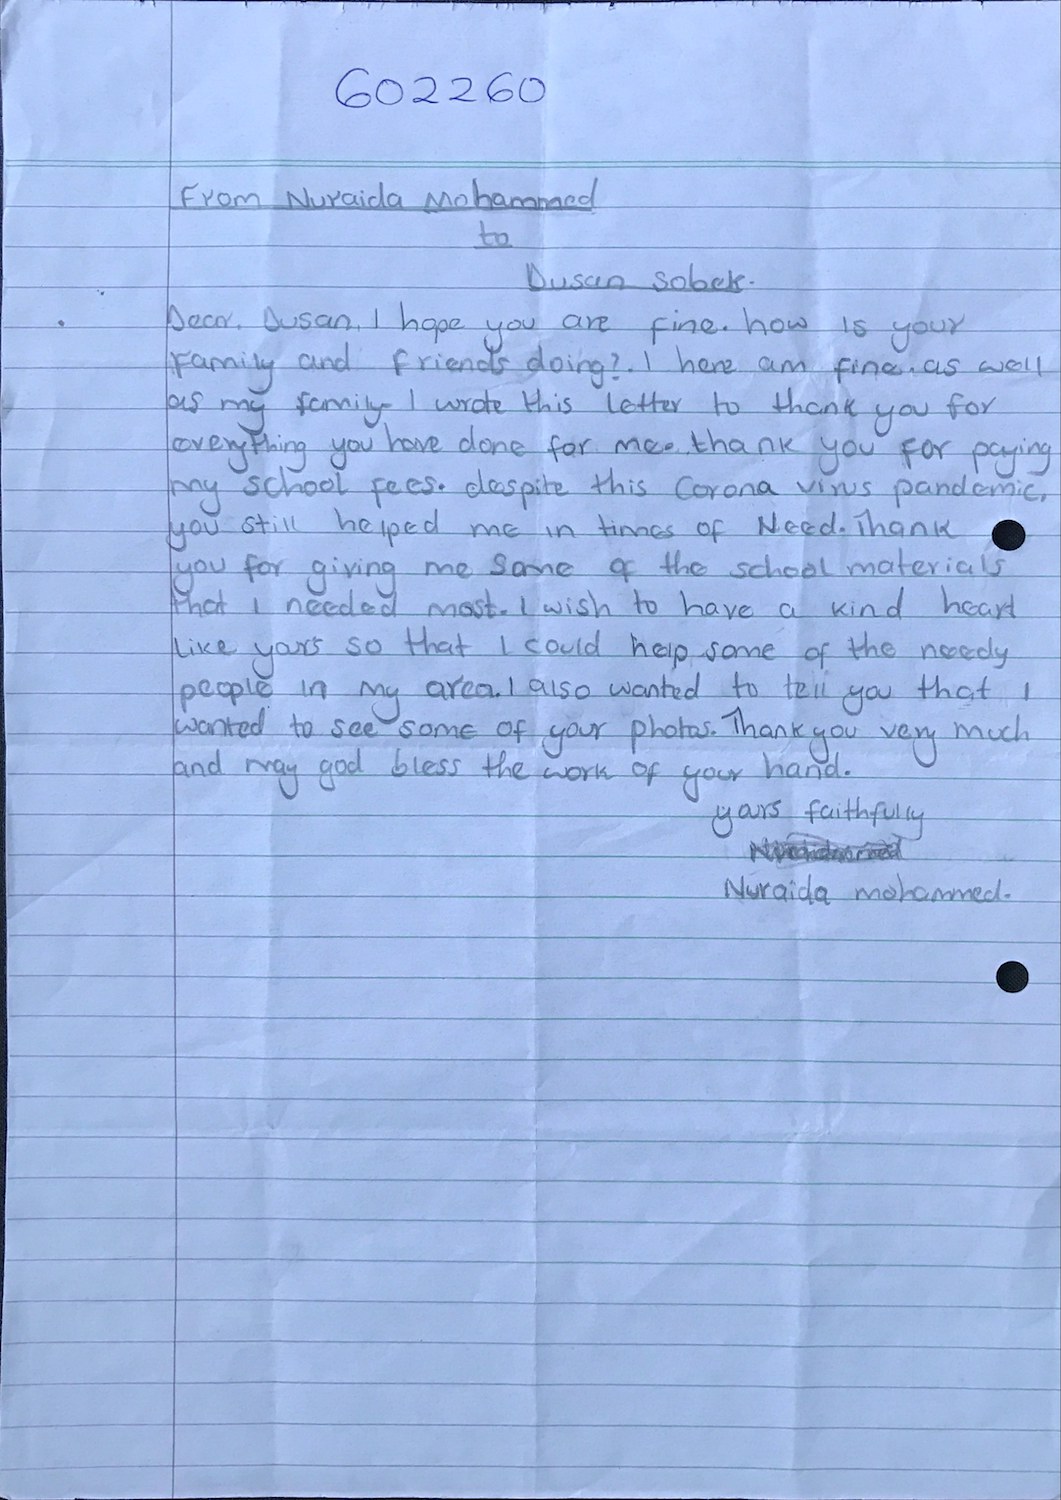 602260
From Nuraida Mohammed
to
Dusan Sobek.
Dear, Dusan, I hope you are fine. how is your
family and friends doing?. I here am fine. as well
as my family. I wrote this letter to thank you for
everything you have done for me. thank you for paying
my school fees. despite this Corona virus pandemic,
you still helped me in times of Need. Thank
you for giving me some of the school materials
that I needed most. I wish to have a kind heart
like yours so that I could help some of the needy
people in my area. I also wanted to tell you that I
wanted to see some of your photos. Thank you very much
and may god bless the work of your hand.
yours faithfully
Nuraida mohammed.